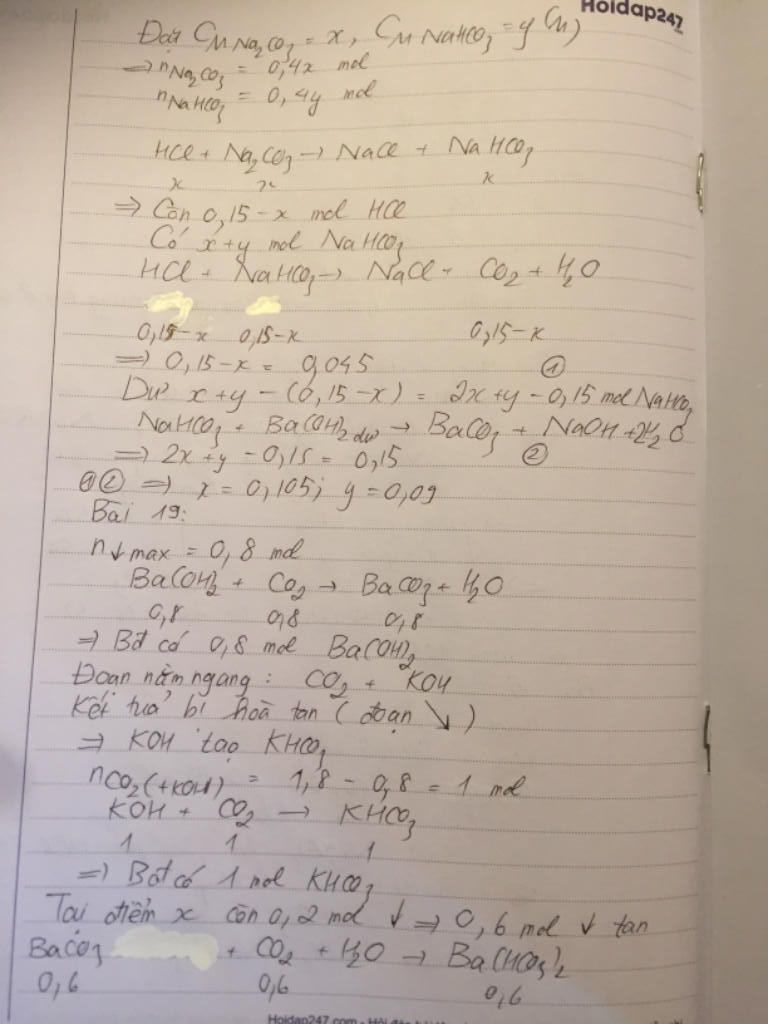 Hoidap247
Đặt CM Na2CO3 = x, CM NaHCO3 = y (M)
=> nNa2CO3 = 0,4x mol
nNaHCO3 = 0,4y mol
HCl + Na2CO3 → NaCl + NaHCO3
x x x
=> Còn 0,15-x mol HCl
Có x+y mol NaHCO3
HCl + NaHCO3 → NaCl + CO2 + H2O
0,15-x 0,15-x 0,15-x
=> 0,15-x = 0,045 ①
Dư x+y-(0,15-x) = 2x+y-0,15 mol NaHCO3
NaHCO3 + Ba(OH)2 dư → BaCO3 + NaOH + 2H2O
=> 2x+y-0,15 = 0,15 ②
①② => x = 0,105; y = 0,09
Bài 19:
n↓max = 0,8 mol
Ba(OH)2 + CO2 → BaCO3 + H2O
0,8 0,8 0,8
=> Bđ có 0,8 mol Ba(OH)2
Đoạn nằm ngang: CO2 + KOH
Kết tuả bị hoà tan (đoạn ↘)
=> KOH tạo KHCO3
nCO2(+KOH) = 1,8 - 0,8 = 1 mol
KOH + CO2 → KHCO3
1 1 1
=> Bđ có 1 mol KHCO3
Tại điểm x còn 0,2 mol ↓ => 0,6 mol ↓ tan
BaCO3 + CO2 + H2O → Ba(HCO3)2
0,6 0,6 0,6
Hoidap247.com